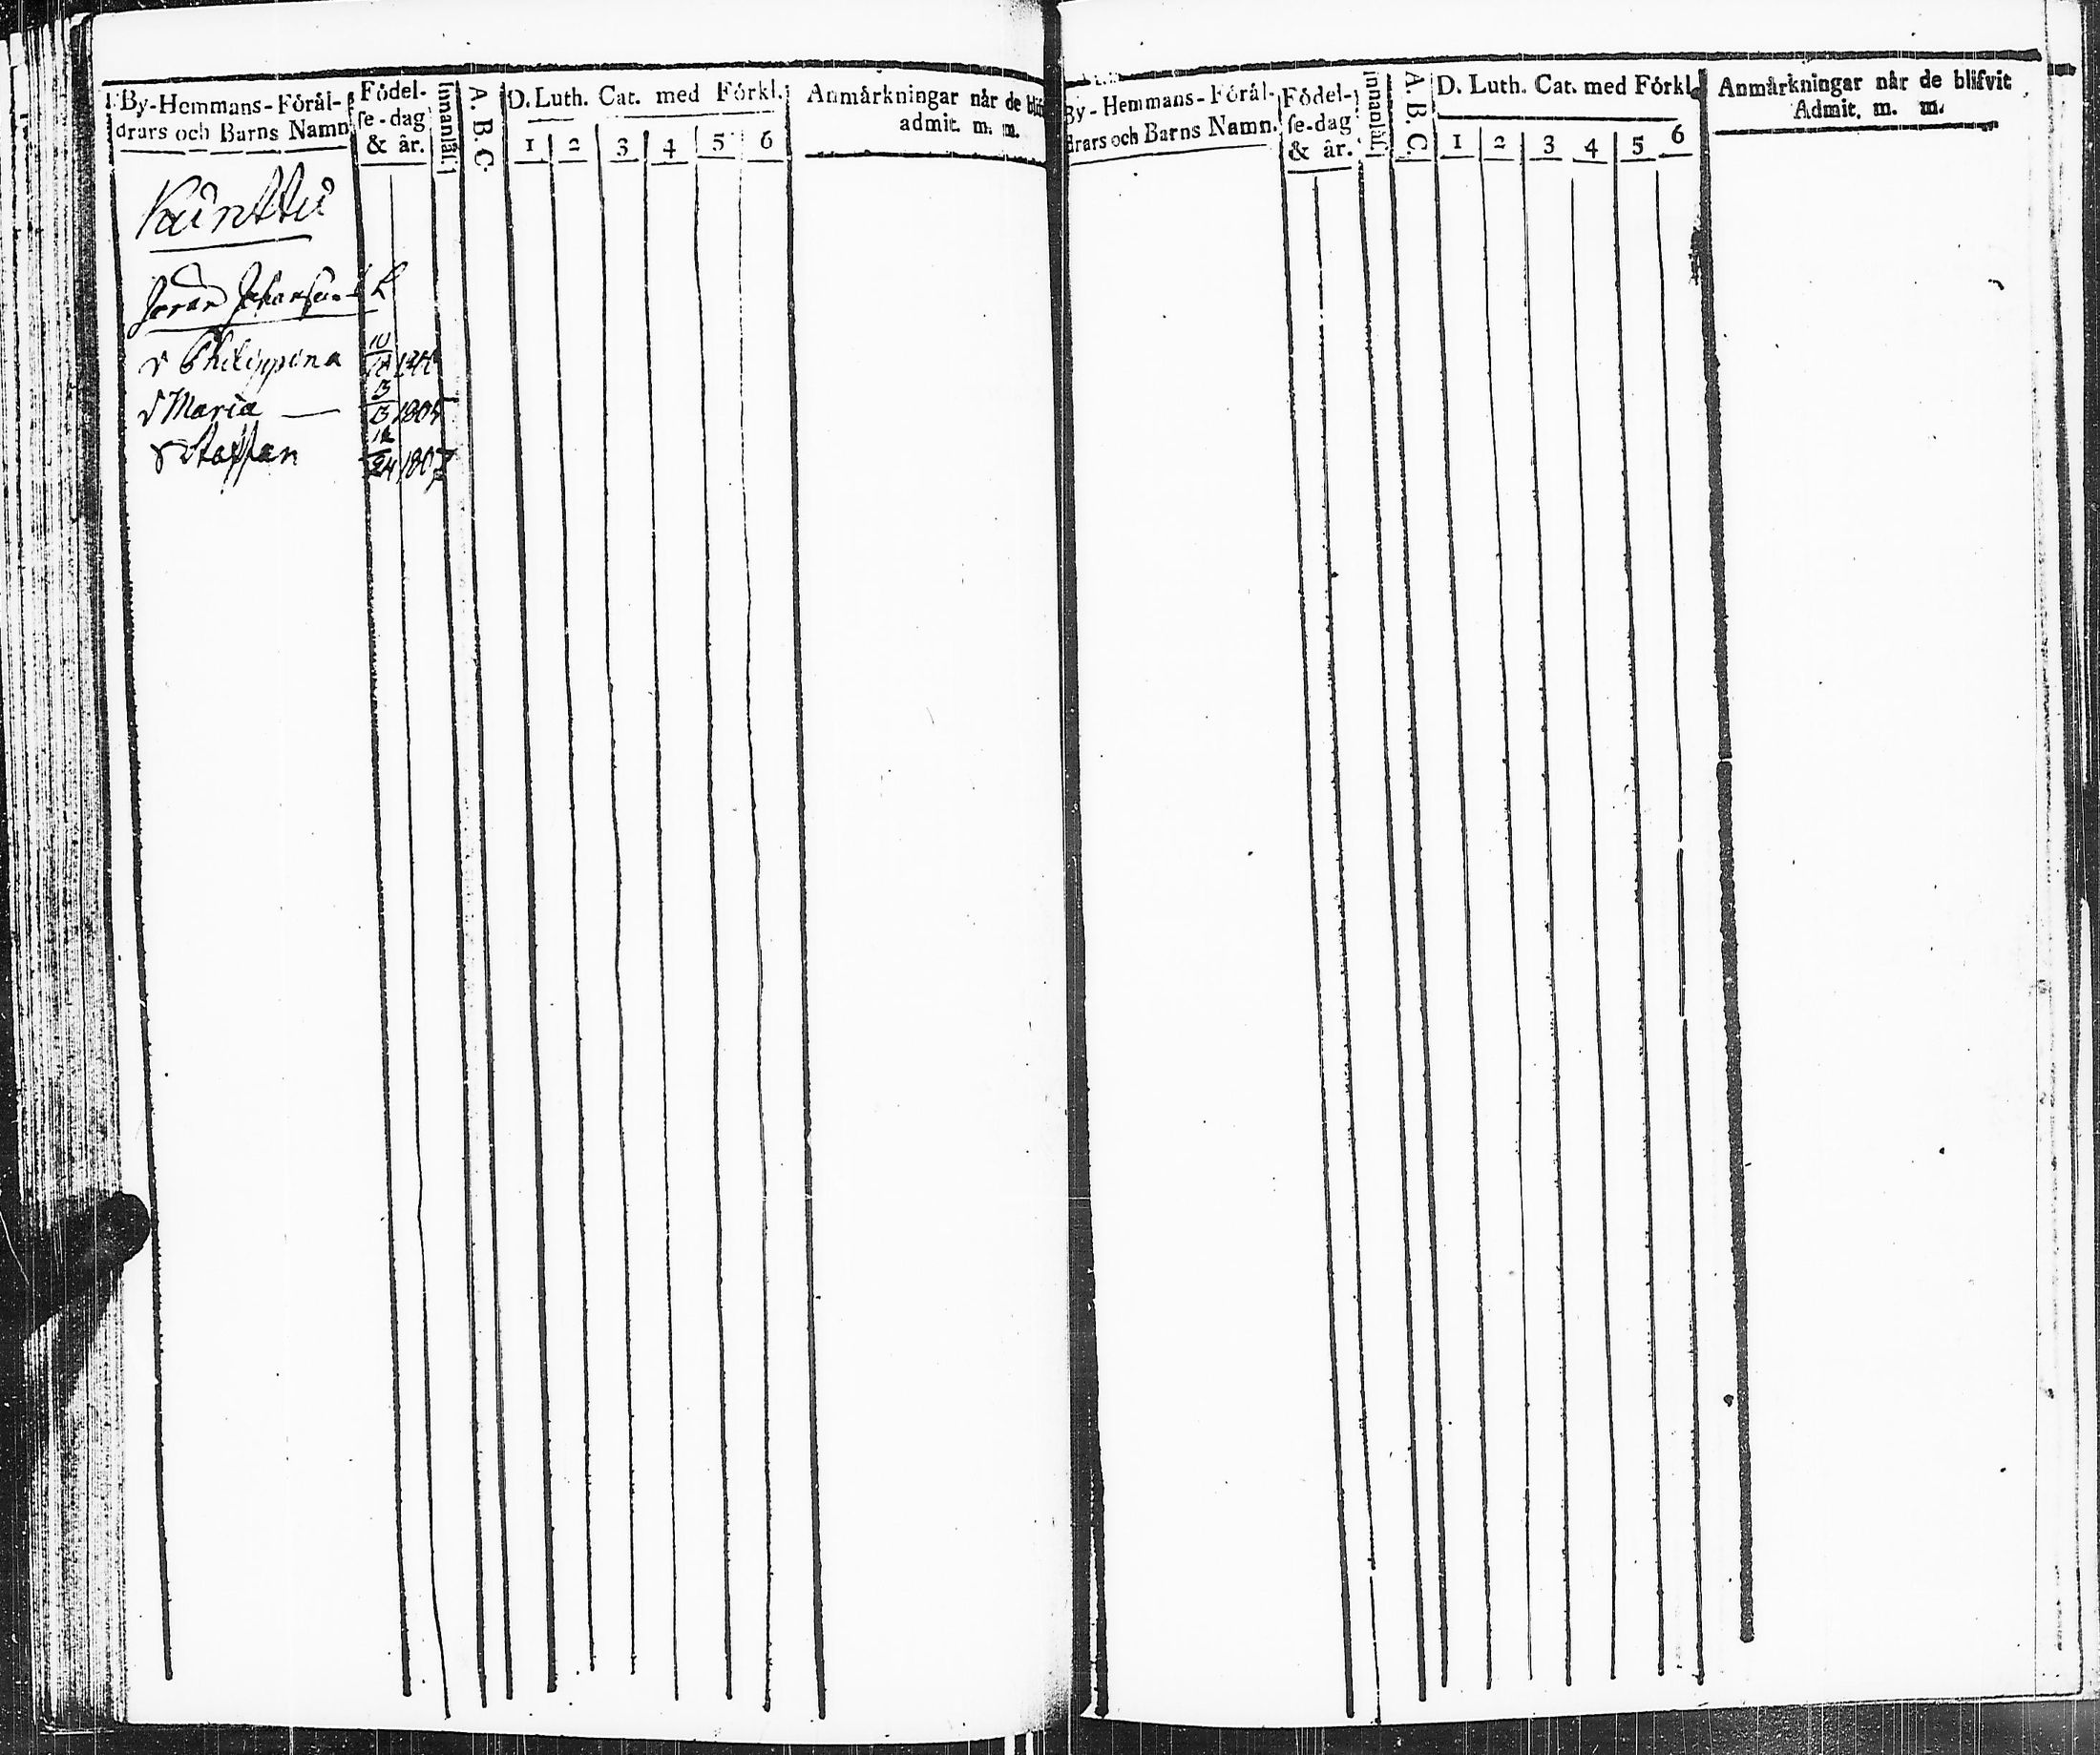 By-Hemmans-Fôrål-
drars och Barns Namn
Fôdel-
se-dag
& år.
Innanläs.
A. B. C.
D. Luth. Cat. med Fôrkl.
1 2 3 4 5 6
Anmårkningar når de blif
admit. m. m.
Kunttu
Johansson
Philippina
Maria — 1805
Staffan 24 1807
By-Hemmans-Fôrål-
drars och Barns Namn.
Fôdel-
se-dag
& år.
Innanläs.
A. B. C.
D. Luth. Cat. med Fôrkl.
1 2 3 4 5 6
Anmårkningar når de blifvit
Admit. m. m.